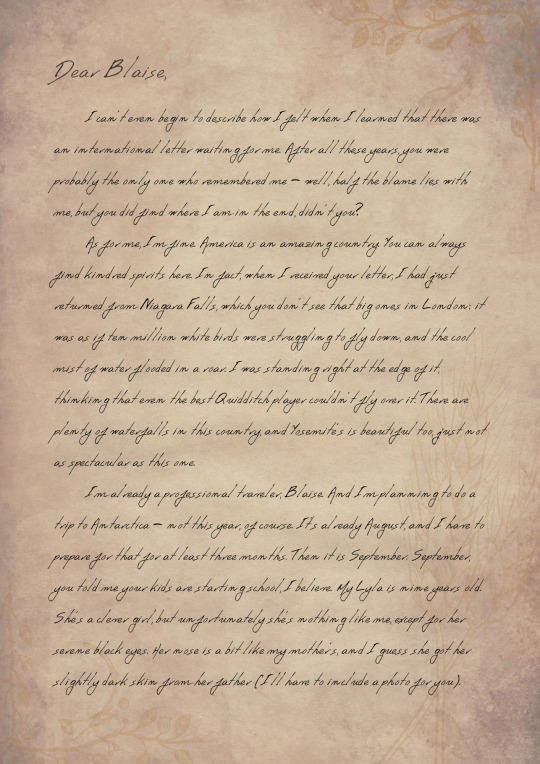 Dear Blaise,
I can't even begin to describe how I felt when I learned that there was
an international letter waiting for me. After all these years, you were
probably the only one who remembered me — well, half the blame lies with
me, but you did find where I am in the end, didn't you?
As for me, I'm fine. America is an amazing country. You can always
find kindred spirits here. In fact, when I received your letter, I had just
returned from Niagara Falls, which you don't see that big ones in London: it
was as if ten million white birds were struggling to fly down, and the cool
mist of water flooded in a roar. I was standing right at the edge of it,
thinking that even the best Quidditch player couldn't fly over it. There are
plenty of waterfalls in this country, and Yosemite's is beautiful too, just not
as spectacular as this one.
I'm already a professional traveler, Blaise. And I'm planning to do a
trip to Antarctica — not this year, of course. It's already August, and I have to
prepare for that for at least three months. Then it is September. September,
you told me your kids are starting school, I believe. My Lyla is nine years old.
She's a clever girl, but unfortunately she's nothing like me, except for her
serene black eyes. Her nose is a bit like my mother's, and I guess she got her
slightly dark skin from her father (I'll have to include a photo for you).